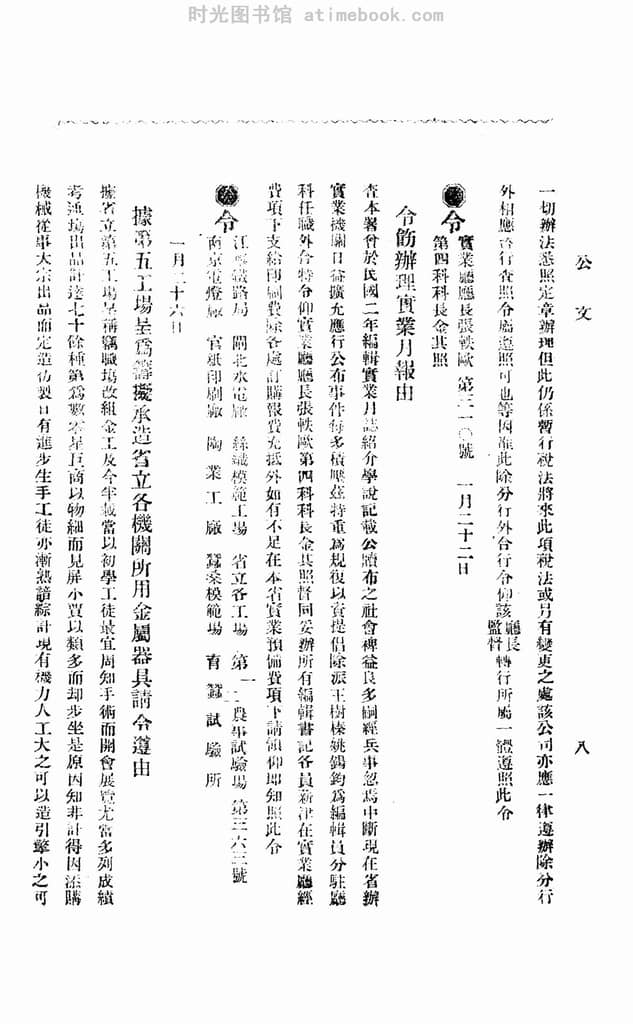 时光图书馆 atimebook.com
公文
八
一切辦法悉照定章辦理但此仍係暫行稅法將來此項稅法或另有變更之處該公司亦應一律遵辦除分行
外相應咨行查照令屬遵照可也等因准此除分行外合行令仰該廳長監督轉行所屬一體遵照此令
令 實業廳廳長張軼歐 第四科科長金其照 第三一〇號 一月二十二日
令飭辦理實業月報由
查本署曾於民國二年編輯實業月誌紹介學說記載公牘布之社會裨益良多嗣經兵事忽焉中斷現在省辦
實業機關日益擴充應行公布事件每多積壓茲特重爲規復以資提倡除派王樹榛姚錫鈞爲編輯員分駐廳
科任職外合特令仰實業廳廳長張軼歐第四科科長金其照督同妥辦所有編輯書記各員薪津在實業廳經
費項下支給印刷費除各處訂購報費充抵外如有不足在本省實業預備費項下請領仰即知照此令
令 江 鐵路局 閘北水電廠 絲織模範工場 省立各工場 第一二農事試驗場 南京電燈廠 官紙印刷廠 陶業工廠 蠶桑模範場 育蠶試驗所 第三六三號
一月二十六日
據第五工場呈爲籌擬承造省立各機關所用金屬器具請令遵由
據省立第五工場呈稱竊職場改組金工及今年載當以初學工徒最宜周知手術而開會展覽尤當多列成績
考連場出品計達七十餘種第爲數不 巨商以物細而見屏小賈以類多而却步坐是原因知非計得因添購
機械從事大宗出品而定造仿製日有進步生手工徒亦漸熟諳綜計現有機力人工大之可以造引擎小之可